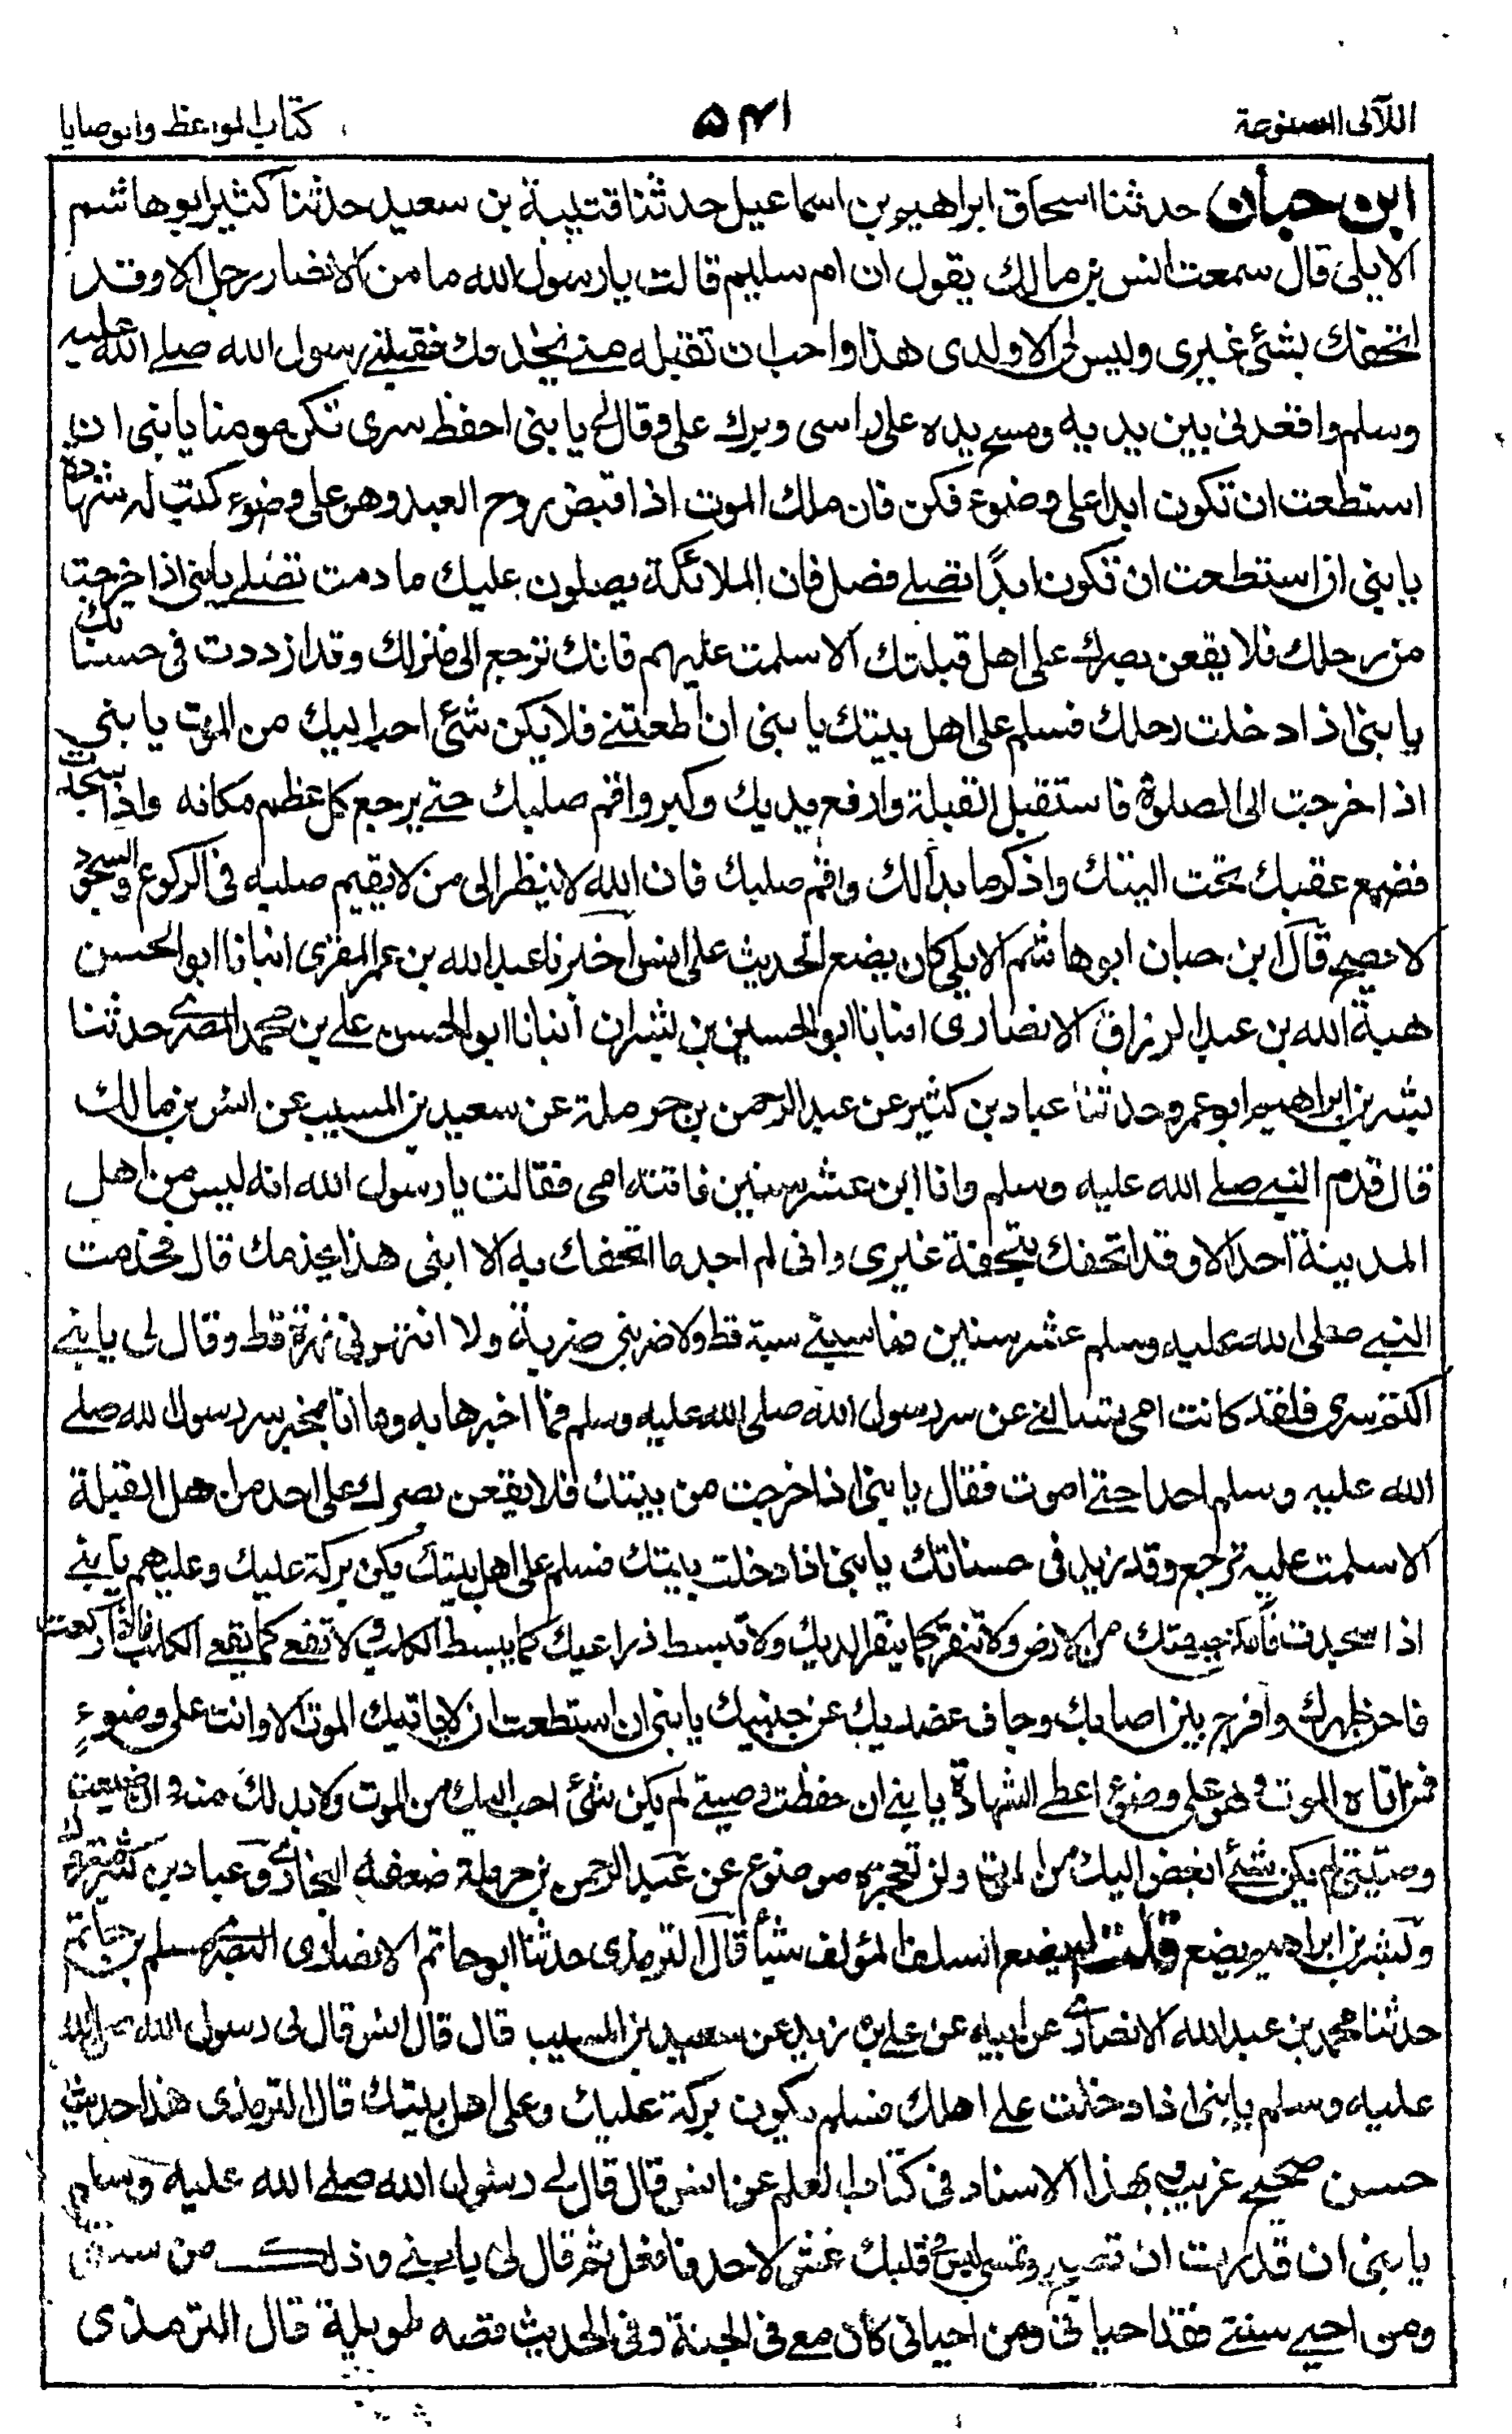 اللآلى المصنوعة
۵۴۱
كتاب المواعظ والوصايا
ابن حبان حدثنا اسحاق ابراهيم بن اسماعيل حدثنا قتيبة بن سعيد حدثنا كثير ابو هاشم
الايلى قال سمعت انس بن مالك يقول ان ام سليم قالت يا رسول الله ما من الانصار رجل الا وقد
اتحفك بشئ غيرى وليس لى الا ولدى هذا واحب ان تقبله منى يخدمك فقبلنى رسول الله صلى الله عليه
وسلم واقعدنى بين يديه ومسح يده على راسى وبرك على وقال لى يا بنى احفظ سرى تكن مومنا يا بنى ان
استطعت ان تكون ابدا على وضوء فكن فان ملك الموت اذا قبض روح العبد وهو على وضوء كتب له شهادة
يا بنى ان استطعت ان تكون ابدًا تصلى فصل فان الملائكة يصلون عليك ما دمت تصلى يا بنى اذا خرجت
من رحلك فلا يقعن بصرك على اهل قبلتك الا سلمت عليهم فانك ترجع الى منزلك وقد ازددت فى حسناتك
يا بنى اذا دخلت رحلك فسلم على اهل بيتك يا بنى ان اطعتنى فلا يكن شئ احب اليك من الموت يا بنى
اذا خرجت الى الصلوة فاستقبل القبلة وارفع يديك وكبر واقم صلبك حتى يرجع كل عظم مكانه واذا سجدت
فضع عقبك تحت اليتك واذكر ما بدا لك واقم صلبك فان الله لا ينظر الى من لا يقيم صلبه فى الركوع والسجود
لا يصح قال ابن حبان ابو هاشم الايلى كان يضع الحديث على انس اخبرنا عبد الله بن عمر المقرى انبانا ابو الحسن
هبة الله بن عبد الرزاق الانصارى انبانا ابو الحسين بن بشران أنبانا ابو الحسن على بن محمد المصرى حدثنا
بشر بن ابراهيم ابو عمرو حدثنا عباد بن كثير عن عبد الرحمن بن حرملة عن سعيد بن المسيب عن انس بن مالك
قال قدم النبى صلى الله عليه وسلم وانا ابن عشر سنين فاتته امى فقالت يا رسول الله انه ليس من اهل
المدينة احد الا وقد اتحفك بتحفة غيرى وانى لم اجد ما اتحفك به الا ابنى هذا يخدمك قال فخدمت
النبى صلى الله عليه وسلم عشر سنين فما سبنى سبة قط ولا ضربنى ضربة ولا انتهرنى نهرة قط وقال لى يا بنى
اكتم سرى فلقد كانت امى تسالنى عن سر رسول الله صلى الله عليه وسلم فما اخبرها به وما انا بمخبر سر رسول الله صلى
الله عليه وسلم احدا حتى اموت فقال يا بنى اذا خرجت من بيتك فلا يقعن بصرك على احد من اهل القبلة
الا سلمت عليه ترجع وقد زيد فى حسناتك يا بنى اذا دخلت بيتك فسلم على اهل بيتك يكن بركة عليك وعليهم يا بنى
اذا سجدت فامكن جبهتك من الارض ولا تنقر كما ينقر الديك ولا تبسط ذراعيك كما يبسط الكلب ولا تقع كما يقعى الكلب فاذا ركعت
فاحن ظهرك وافرج بين اصابعك وجاف عضديك عن جنبيك يا بنى ان استطعت ان لا ياتيك الموت الا وانت على وضوءٍ
فمن اتاه الموت وهو على وضوء اعطى الشهادة يا بنى ان حفظت وصيتى لم يكن شئ احب اليك من الموت ولا بد لك منه وان ضيعت
وصيتى لم يكن شئ ابغض اليك من الموت ولن تعجزه موضوع عن عبد الرحمن بن حرملة ضعفه البخارى وعباد بن كثير
وبشر بن ابراهيم يضع قلت لم يضع المؤلف شيأ قال الترمذى حدثنا ابو حاتم الانصارى البصرى مسلم بن حاتم
حدثنا محمد بن عبد الله الانصارى عن ابيه عن على بن زيد عن سعيد بن المسيب قال قال انس قال لى رسول الله صلى الله
عليه وسلم يا بنى اذا دخلت على اهلك فسلم يكون بركة عليك وعلى اهل بيتك قال الترمذى هذا حديث
حسن صحيح غريب وبهذا الاسناد فى كتاب العلم عن انس قال قال لى رسول الله صلى الله عليه وسلم
يا بنى ان قدرت ان تصبح وتمسى ليس فى قلبك غش لاحد فافعل ثم قال لى يا بنى وذلك من سنتى
ومن احيى سنتى فقد احيانى ومن احيانى كان معى فى الجنة وفى الحديث قصه طويلة قال الترمذى